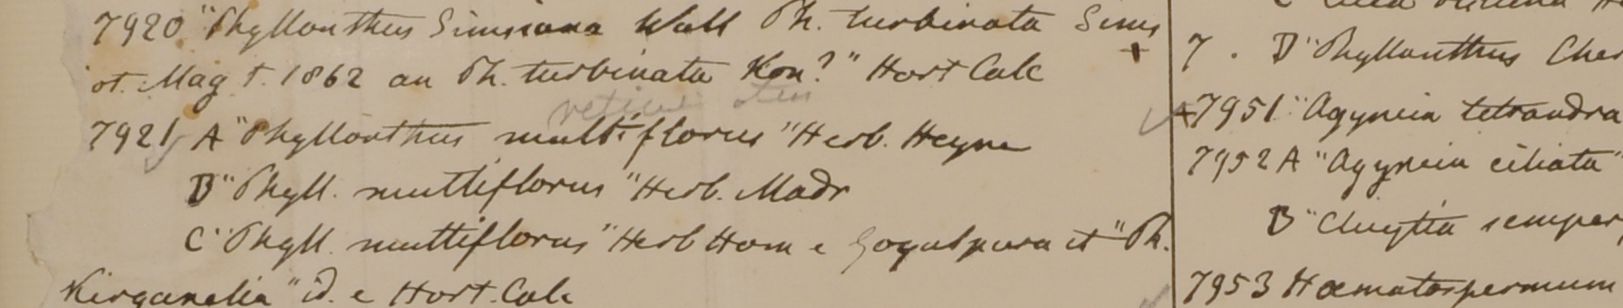 7920 "Phyllanthus Simsiana Wall Ph. turbinata Sims
ot. Mag t. 1862 an Ph. turbinata Kon?" Hort Calc
7921 A "Phyllanthus multiflorus" Herb. Heyne
B "Phyll. multiflorus" Herb. Madr
C "Phyll. multiflorus" Herb Ham e Goyalpara et "Ph.
Kirganelia" id. e Hort. Calc
7. B "Phyllanthus Cher
7951 "Agyneia tetrandra
7952 A "Agyneia ciliata"
B "Cluytia semper
7953 Hæmatospermum